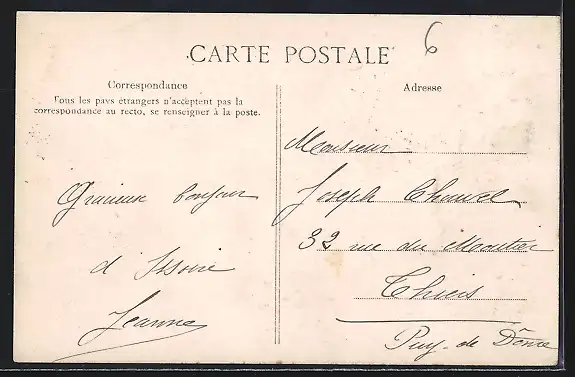 6
CARTE POSTALE
Correspondance
Tous les pays étrangers n'acceptent pas la
correspondance au recto, se renseigner à la poste.
Gracieux bonjour
d'Issoire
Jeanne
Adresse
Monsieur
Joseph Chauvel
32 rue du Moutier
Thiers
Puy-de Dôme